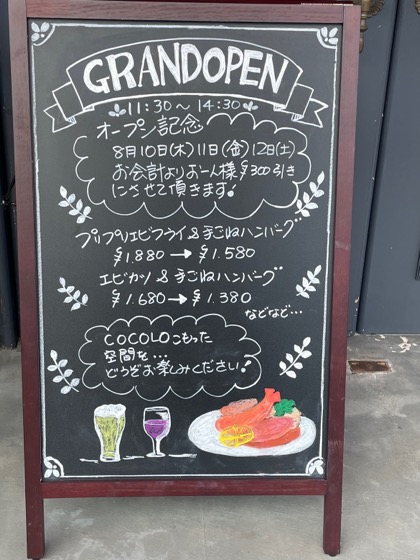 GRANDOPEN
11:30〜14:30
オープン記念
8月10日(木)11日(金)12日(土)
お会計よりお一人様¥300引き
にさせて頂きます!
プリプリエビフライ&手ごねハンバーグ
¥1.880→¥1.580
エビカツ&手ごねハンバーグ
¥1.680→¥1.380
などなど…
COCOLOこもった
空間を…
どうぞお楽しみください!